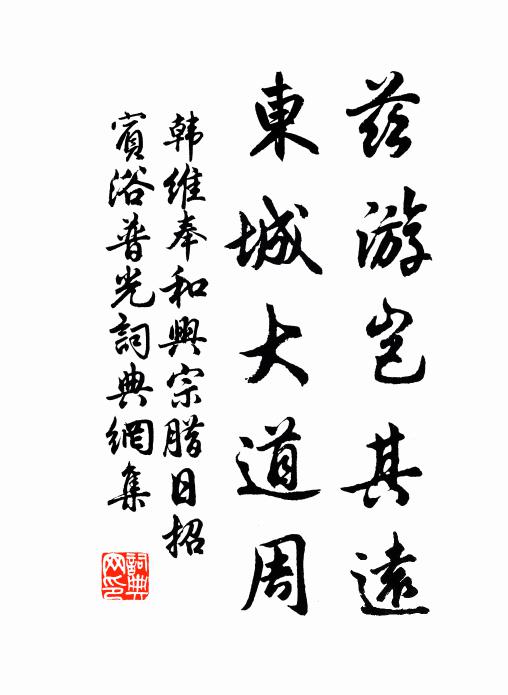 茲游豈其遠
東城大道周
韩維奉和興宗腊日招
賓浴普光詞典網集
詞典
网印